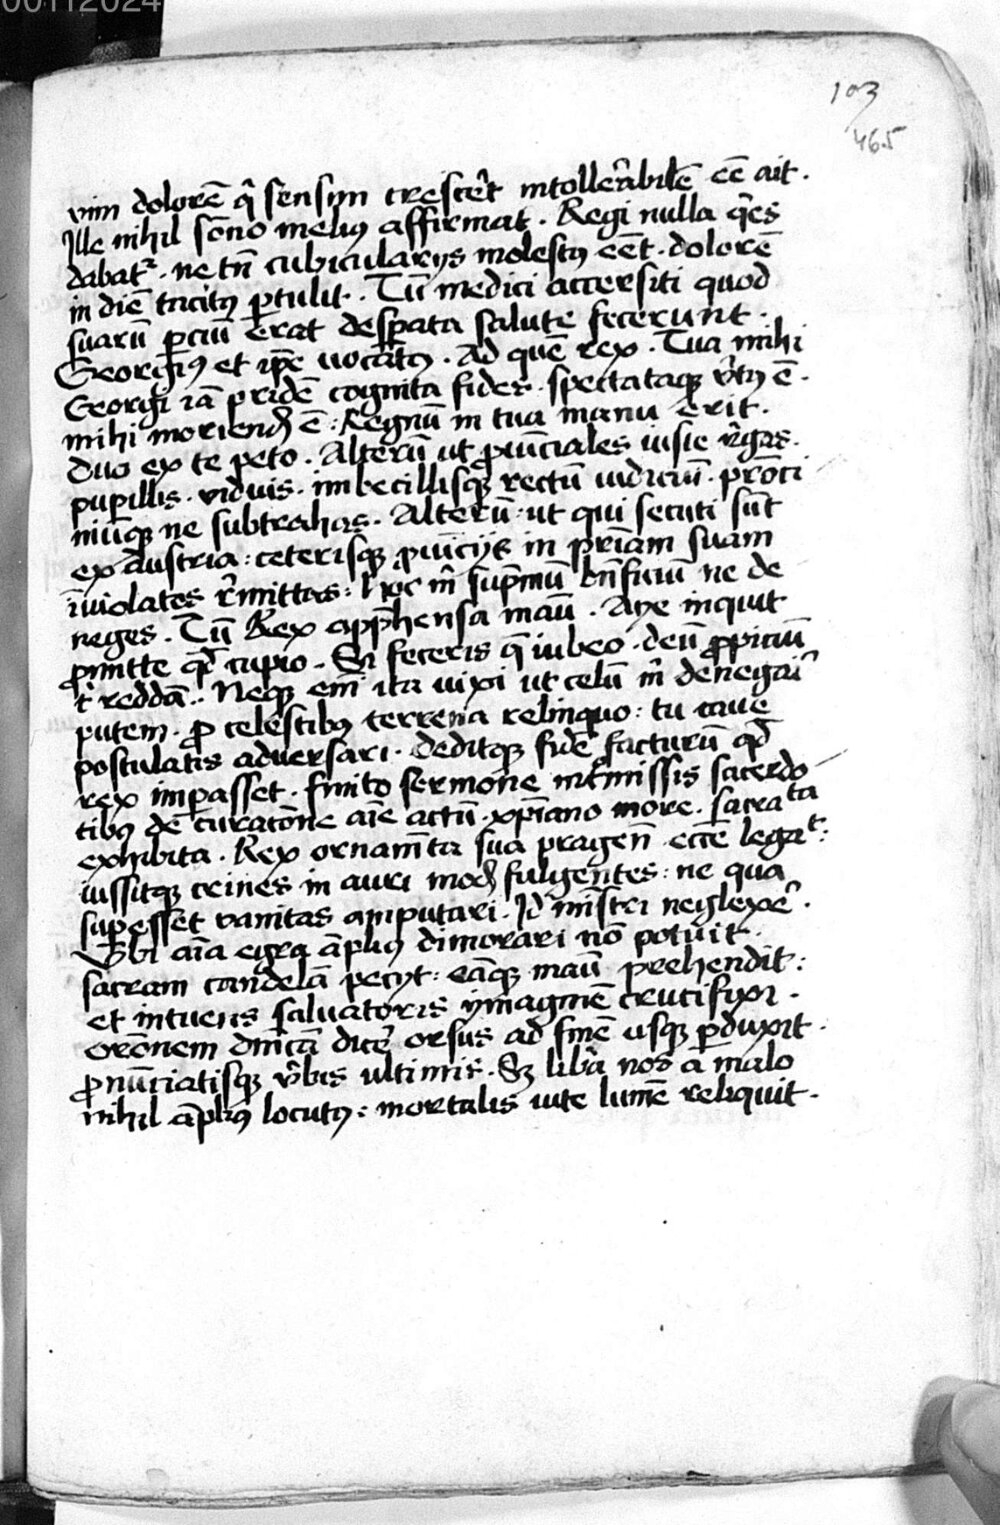 00112024
103
465
vim dolorē q̄ sensim cresce᷑t intolle᷑abilē eē ait.
Ille nihil sōno melius affirmat. Regi nulla q̄es
dabat᷑. ne tn̄ cubicularijs molestus eēt. dolorē
in diē tacitus ꝑtulit. Tū medici accersiti quod
suarū ꝑciū erat despata salute fecerunt.
Georgius et ip̄e uocātus. Ad quē rex. Tua mihi
Georgi iā pridē cognita fides. spectataqꝫ v̄tus ē.
mihi moriend ē: Regnū in tua manu erit.
duo ex te peto. Alterū ut ꝓuīciales iuste r̄gas.
pupillis. viduis. imbecillisqꝫ rectū iudiciū. prōci
niūqꝫ ne subtrahas. Alterū: ut qui secuti sūt
ex Austria: ceterisqꝫ ꝓuīcijs in pr̄iam suam
īuiolatos r̄mittas: hoc m̄ sup̄mū bn̄ficiū ne de
neges. Tū Rex app̄hensa manū. Aye inquit
ꝓmitte qd̄ cupio. Si feceris q̄ iubeo. deū ꝓpiciū
t̄ reddā. Neqꝫ em̄ ita uixi ut celū m̄ denegari
putem. ꝓ celestibus terrena relinquo: tu caue
postulatis adversari. deditqꝫ fidē facturū qd̄
rex imꝑasset. finito sermone int̄missis sacerdo
tibus de curatōne aīe actū. xp̄iano more. sacrata
exhibita. Rex ornam̄ta sua pragen̄ ecc̄e legat:
iussitqꝫ crines in auri mod fulgentes: ne qua
suꝑesset vanitas amputari. Id mīstri neglexe᷑.
Vbi aīa egra āplius dimorari nō potuit.
sacram candelā pecijt: eāqꝫ manū prehendit:
et intuens saluatoris ymaginē crucifixi.
orōnem dn̄icā dice᷑ orsus ad finē usqꝫ ꝑduxit.
ꝓnūciatisqꝫ v̄bis ultimis. Sꝫ liba᷑ nos a malo
nihil āplius locutus: mortalis uite lumē reliquit.